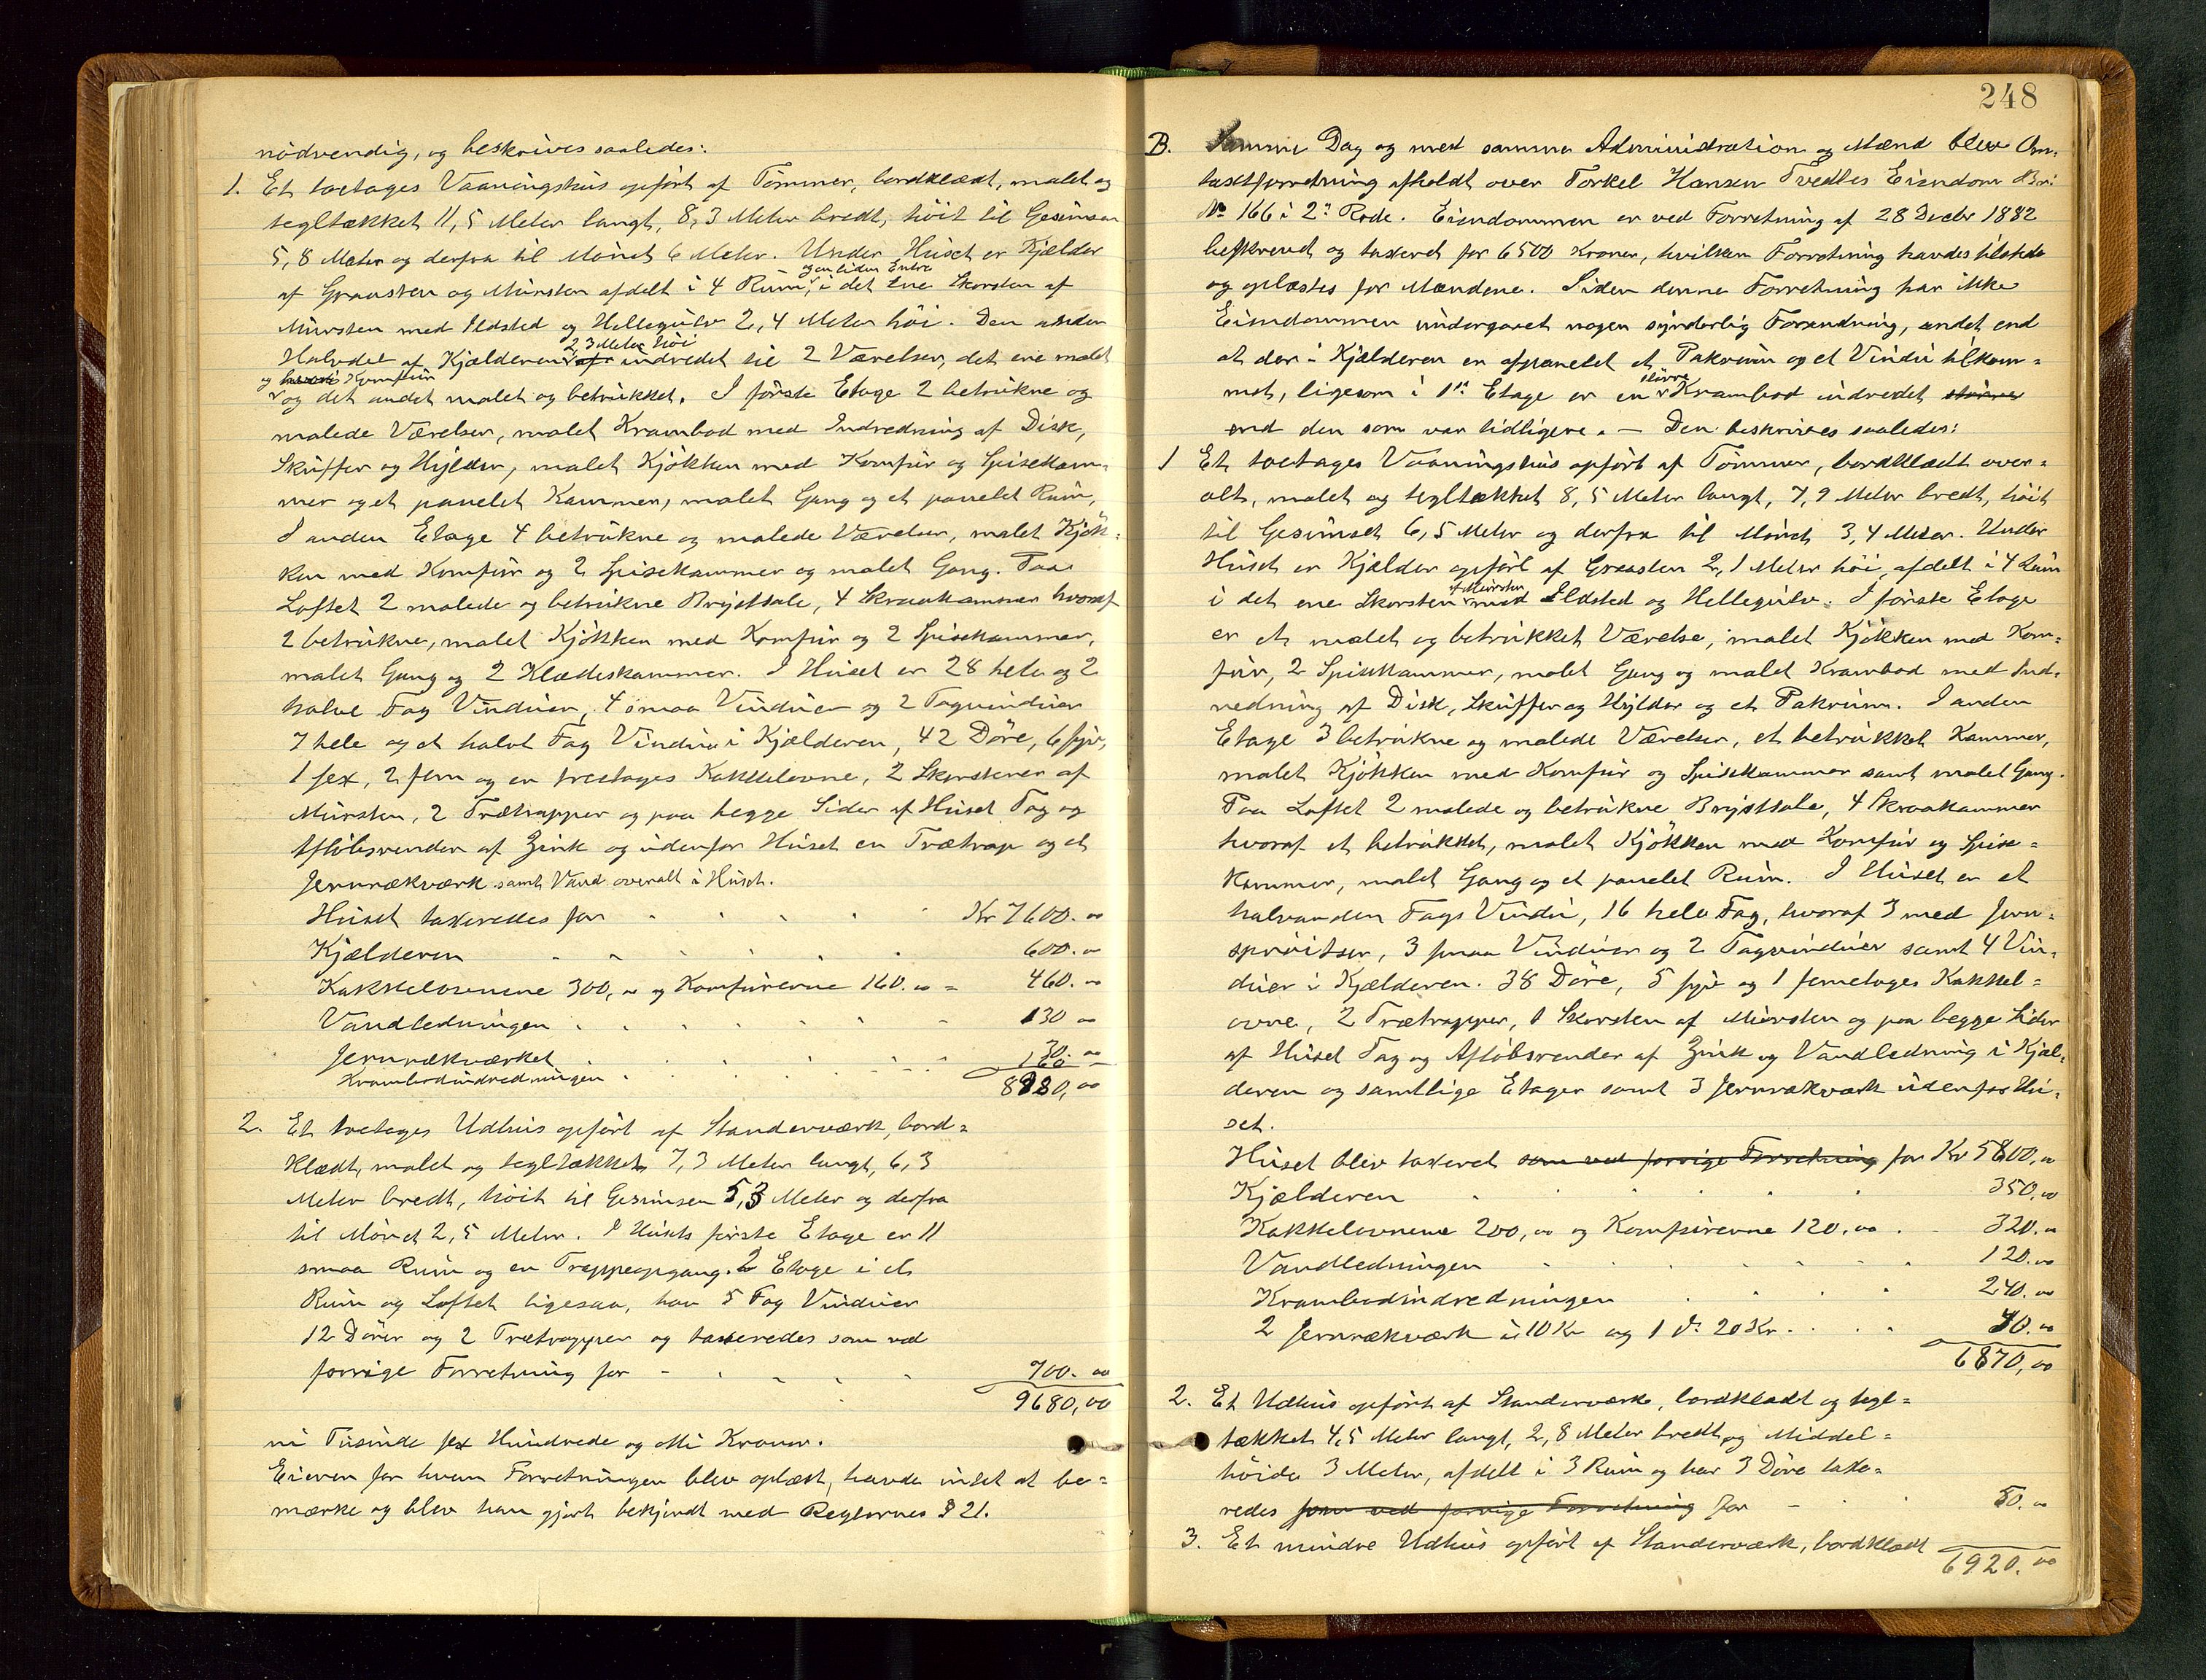 nödvendig, og beskrives saaledes:
1. Et toetages Vaaningshus opfört af Tömmer, bordklædt, malet og
tegltækket 11,5 Meter langt, 8,3 Meter bredt, höit til Gesimsen
5,8 Meter og derfra til Mönet 6 Meter. Under Huset er Kjælder
og en liden Entre
af Graasten og Mursten afdelt i 4 Rum, i det ene Skorsten af
Mursten med Ildsted og Hellegulv 2,4 Meter höi. Den anden
2,3 Meter höi
Halvdel af Kjælderen er indredet til 2 Værelser, det ene malet
og Komfür
og det andet malet og betrukket. I förste Etage 2 betrukne og
malede Værelser, malet Krambod med Indredning af Disk,
Skuffer og Hylder, malet Kjökken med Komfür og Spisekam-
mer og et panelet Kammer, malet Gang og et panelet Rum,
I anden Etage 4 betrukne og malede Værelser, malet Kjök-
ken med Komfür og 2 Spisekammer og malet Gang. Paa
Loftet 2 malede og betrukne Brystsale, 4 Skraakammer hvoraf
2 betrukne, malet Kjökken med Komfür og 2 Spisekammer,
malet Gang og 2 Klædeskammer. I Huset er 28 hele og 2
halve Fag Vinduer, 4 smaa Vinduer og 2 Tagvinduer
7 hele og et halvt Fag Vindue i Kjælderen, 42 Döre, 6 fyr,
1 sex, 2 fem og en treetages Kakkelovne, 2 Skorstener af
Mursten, 2 Trætrapper og paa begge Sider af Huset Tag og
Aflöbsrender af Zink og udenfor Huset en Trætrap og et
Jernrækværk samt Vand overalt i Huset.
Huset taxeredes for Kr 7600.00
Kjælderen 600.00
Kakkelovnene 300,00 og Komfürerne 160.00 = 460.00
Vandledningen 130 00
Jernrækværket 30.00
Krambodindredningen 160
8980,00
2. Et toetages Udhus opfört af Standerværk, bord-
klædt, malet og tegltækket 7,3 Meter langt, 6,3
Meter bredt, höit til Gesimsen 5,3 Meter og derfra
til Mönet 2,5 Meter. I Husets förste Etage er 11
smaa Rum og en Trappeopgang. 2 Etage i et
Rum og Loftet ligesaa, har 5 Fag Vinduer
12 Dörer og 2 Trætrapper og taxeredes som ved
forrige Forretning for 700.00
9680,00
ni Tusinde sex Hundrede og otti Kroner.
Eieren for hvem Forretningen blev oplæst, havde intet at be-
mærke og blev han gjort bekjendt med Reglernes § 21.
248
B. Samme Dag og med samme Administration og Mænd blev Om-
taxtforretning afholdt over Torkel Hansen Tvedtes Eiendom Br:
No 166 i 2n Rode. Eiendommen er ved Forretning af 28 Decbr 1882
beskrevet og taxeret for 6500 Kroner, hvilken Forretning havdes tilstede
og oplæstes for Mændene. Siden denne Forretning har ikke
Eiendommen undergaaet nogen synderlig Forandring, andet end
at der i Kjælderen er afpanelet et Pakrum og et Vindu tilkom-
större
met, ligesom i 1ste Etage er en Krambod indredet större
end den som var tidligere. — Den beskrives saaledes:
1 Et toetages Vaaningshus opfört af Tömmer, bordklædt over-
alt, malet og tegltækket 8,5 Meter langt, 7,9 Meter bredt, höit
til Gesimset 6,5 Meter og derfra til Mönet 3,4 Meter. Under
Huset er Kjælder opfört af Graasten 2,1 Meter höi, afdelt i 4 Rum
af Mursten
i det ene Skorsten med Ildsted og Hellegulv. I förste Etage
er et malet og betrukket Værelse, malet Kjökken med Kom-
für, 2 Spisekammer, malet Gang og malet Krambod med Ind-
redning af Disk, Skuffer og Hylder og et Pakrum. I anden
Etage 3 betrukne og malede Værelser, et betrukket Kammer,
malet Kjökken med Komfür og Spisekammer samt malet Gang.
Paa Loftet 2 malede og betrukne Brystsale, 4 Skraakammer
hvoraf et betrukket, malet Kjökken med Komfür og Spise-
kammer, malet Gang og et panelet Rum. I Huset er et
halvanden Fags Vindu, 16 hele Fag, hvoraf 3 med Jern-
sprösser, 3 smaa Vinduer og 2 Tagvinduer samt 4 Vin-
duer i Kjælderen. 38 Döre, 5 fyr og 1 femetages Kakkel-
ovne, 2 Trætrapper, 1 Skorsten af Mursten og paa begge Sider
af Huset Tag og Aflöbsrender af Zink og Vandledning i Kjæl-
deren og samtlige Etager samt 3 Jernrækværk udenfor Hu-
set.
Huset blev taxeret som ved forrige Forretning for Kr 5800,00
Kjælderen 350,00
Kakkelovnene 200,00 og Komfürerne 120.00 320.00
Vandledningen 120.00
Krambodindredningen 240.00
2 Jernrækværk à 10 Kr og 1 do 20 Kr. 40.00
6870,00
2. Et Udhus opfört af Standerværk, bordklædt og tegl-
tækket 4,5 Meter langt, 2,8 Meter bredt, og Middel-
höide 3 Meter, afdelt i 3 Rum og har 3 Döre taxe-
redes som ved forrige Forretning for 50.00
3. Et mindre Udhus opfört af Standerværk, bordklædt
6920.00